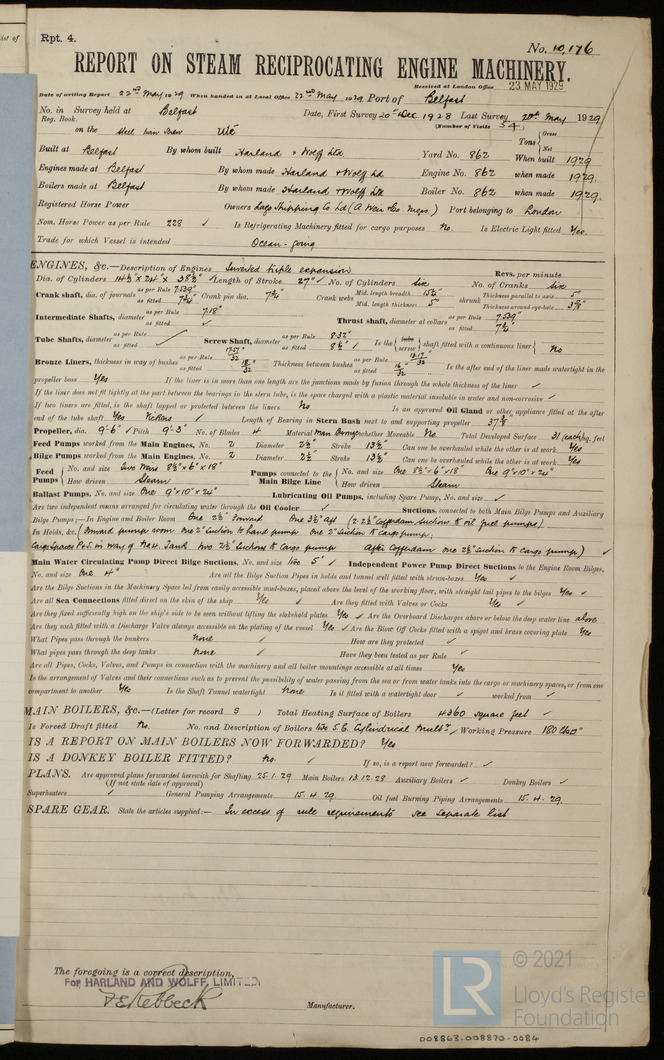 Rpt. 4.
No. 10,176
REPORT ON STEAM RECIPROCATING ENGINE MACHINERY.
Received at London Office 23 MAY 1929
Date of writing Report 22nd May 1929 When handed in at Local Office 22nd May 1929 Port of Belfast
No. in Survey held at Belfast Date, First Survey 20th Dec 1928 Last Survey 20th May 1929
Reg. Book. (Number of Visits 54)
on the Steel twin screw Ulé Tons Gross Net
Built at Belfast By whom built Harland & Wolff Ltd Yard No. 862 When built 1929
Engines made at Belfast By whom made Harland & Wolff Ltd Engine No. 862 when made 1929
Boilers made at Belfast By whom made Harland & Wolff Ltd Boiler No. 862 when made 1929
Registered Horse Power Owners Lago Shipping Co Ltd (A Weir & Co. Mgrs.) Port belonging to London
Nom. Horse Power as per Rule 228 ✓ Is Refrigerating Machinery fitted for cargo purposes No. Is Electric Light fitted Yes.
Trade for which Vessel is intended Ocean-going
ENGINES, &c.—Description of Engines Inverted triple expansion Revs. per minute
Dia. of Cylinders 14½" x 24" x 38½" ✓ Length of Stroke 27" ✓ No. of Cylinders six No. of Cranks six
Crank shaft, dia. of journals as per Rule 7.539" as fitted 7¾" Crank pin dia. 7¾" Crank webs Mid. length breadth 15½" Mid. length thickness 5" shrunk Thickness parallel to axis 5" Thickness around eye-hole 3⅜"
Intermediate Shafts, diameter as per Rule 7.18" as fitted ✓ Thrust shaft, diameter at collars as per Rule 7.539" as fitted 7¾"
Tube Shafts, diameter as per Rule as fitted ✓ Screw Shaft, diameter as per Rule 8.32" as fitted 8½" ✓ Is the tube screw shaft fitted with a continuous liner No
Bronze Liners, thickness in way of bushes as per Rule as fitted Thickness between bushes as per Rule as fitted Is the after end of the liner made watertight in the
propeller boss Yes If the liner is in more than one length are the junctions made by fusion through the whole thickness of the liner ✓
If the liner does not fit tightly at the part between the bearings in the stern tube, is the space charged with a plastic material insoluble in water and non-corrosive ✓
If two liners are fitted, is the shaft lapped or protected between the liners No Is an approved Oil Gland or other appliance fitted at the after
end of the tube shaft Yes Vickers ✓ Length of Bearing in Stern Bush next to and supporting propeller
Propeller, dia. 9'-6" ✓ Pitch 9'-3" No. of Blades 4 Material Man Bronze whether Moveable No. Total Developed Surface 31 (each) sq. feet
Feed Pumps worked from the Main Engines, No. 2 Diameter 2½" Stroke 13½" Can one be overhauled while the other is at work Yes
Bilge Pumps worked from the Main Engines, No. 2 Diameter 2½" Stroke 13½" Can one be overhauled while the other is at work Yes
Feed Pumps No. and size Two Weirs 8½" x 6" x 18" How driven Steam Pumps connected to the Main Bilge Line No. and size One 8½" x 6" x 18" One 9" x 10" x 24" How driven Steam
Ballast Pumps, No. and size One 9" x 10" x 24" Lubricating Oil Pumps, including Spare Pump, No. and size ✓
Are two independent means arranged for circulating water through the Oil Cooler ✓ Suctions, connected to both Main Bilge Pumps and Auxiliary
Bilge Pumps ;—In Engine and Boiler Room One 2½" Forward One 3½" Aft (2-2½" Cofferdam suctions to oil fuel pumps)
In Holds, &c. (Forward pump room one 2" suction to hand pump One 2" suction to cargo pump,
Cargo Spaces P&S in way of Main Tank two 2½" suctions to cargo pump After Cofferdam one 2½" suction to cargo pump) ✓
Main Water Circulating Pump Direct Bilge Suctions, No. and size two 5" ✓ Independent Power Pump Direct Suctions to the Engine Room Bilges,
No. and size One 4" Are all the Bilge Suction Pipes in holds and tunnel well fitted with strum-boxes Yes ✓
Are the Bilge Suctions in the Machinery Space led from easily accessible mud-boxes, placed above the level of the working floor, with straight tail pipes to the bilges Yes ✓
Are all Sea Connections fitted direct on the skin of the ship Yes ✓ Are they fitted with Valves or Cocks Yes ✓
Are they fixed sufficiently high on the ship's side to be seen without lifting the stokehold plates Yes ✓ Are the Overboard Discharges above or below the deep water line above
Are they each fitted with a Discharge Valve always accessible on the plating of the vessel Yes ✓ Are the Blow Off Cocks fitted with a spigot and brass covering plate Yes
What Pipes pass through the bunkers None ✓ How are they protected ✓
What pipes pass through the deep tanks None ✓ Have they been tested as per Rule ✓
Are all Pipes, Cocks, Valves, and Pumps in connection with the machinery and all boiler mountings accessible at all times Yes
Is the arrangement of Valves and their connections such as to prevent the possibility of water passing from the sea or from water tanks into the cargo or machinery spaces, or from one
compartment to another Yes Is the Shaft Tunnel watertight None Is it fitted with a watertight door ✓ worked from ✓
MAIN BOILERS, &c.—(Letter for record S ) Total Heating Surface of Boilers 4360 square feet ✓
Is Forced Draft fitted No. No. and Description of Boilers two S.E. Cylindrical Multr ✓ Working Pressure 180 lbs □"
IS A REPORT ON MAIN BOILERS NOW FORWARDED? Yes
IS A DONKEY BOILER FITTED? No. ✓ If so, is a report now forwarded? ✓
PLANS. Are approved plans forwarded herewith for Shafting 25.1.29 Main Boilers 13.12.28 Auxiliary Boilers ✓ Donkey Boilers ✓
(If not state date of approval)
Superheaters ✓ General Pumping Arrangements 15.4.29. Oil fuel Burning Piping Arrangements 15.4.29.
SPARE GEAR. State the articles supplied :— In excess of rule requirements see separate list
The foregoing is a correct description,
FOR HARLAND AND WOLFF, LIMITED
F E Rebbeck
Manufacturer.
LR © 2021
Lloyd's Register
Foundation
008863-008870-0084